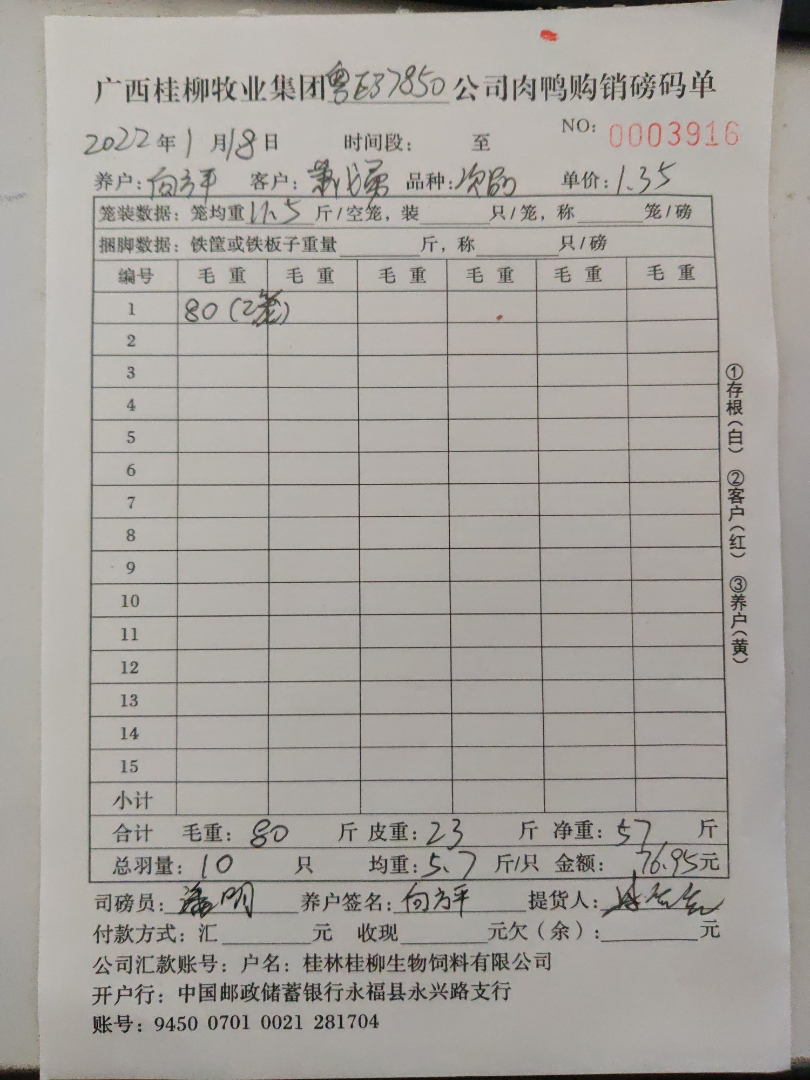 广西桂柳牧业集团粤E37850公司肉鸭购销磅码单
2022年1月18日 时间段: 至 NO: 0003916
养户:向方平 客户: 品种:次鸭 单价:1.35
笼装数据:笼均重11.5斤/空笼,装 只/笼,称 笼/磅
捆脚数据:铁筐或铁板子重量 斤,称 只/磅
编号 毛重 毛重 毛重 毛重 毛重 毛重
1 80(2笼)
2
3
4
5
6
7
8
9
10
11
12
13
14
15
小计
合计 毛重:80 斤 皮重:23 斤 净重:57 斤
总羽量:10 只 均重:5.7 斤/只 金额:76.95元
司磅员: 养户签名:向方平 提货人:
付款方式:汇 元 收现 元欠(余): 元
公司汇款账号:户名:桂林桂柳生物饲料有限公司
开户行:中国邮政储蓄银行永福县永兴路支行
账号:9450 0701 0021 281704
①存根(白) ②客户(红) ③养户(黄)